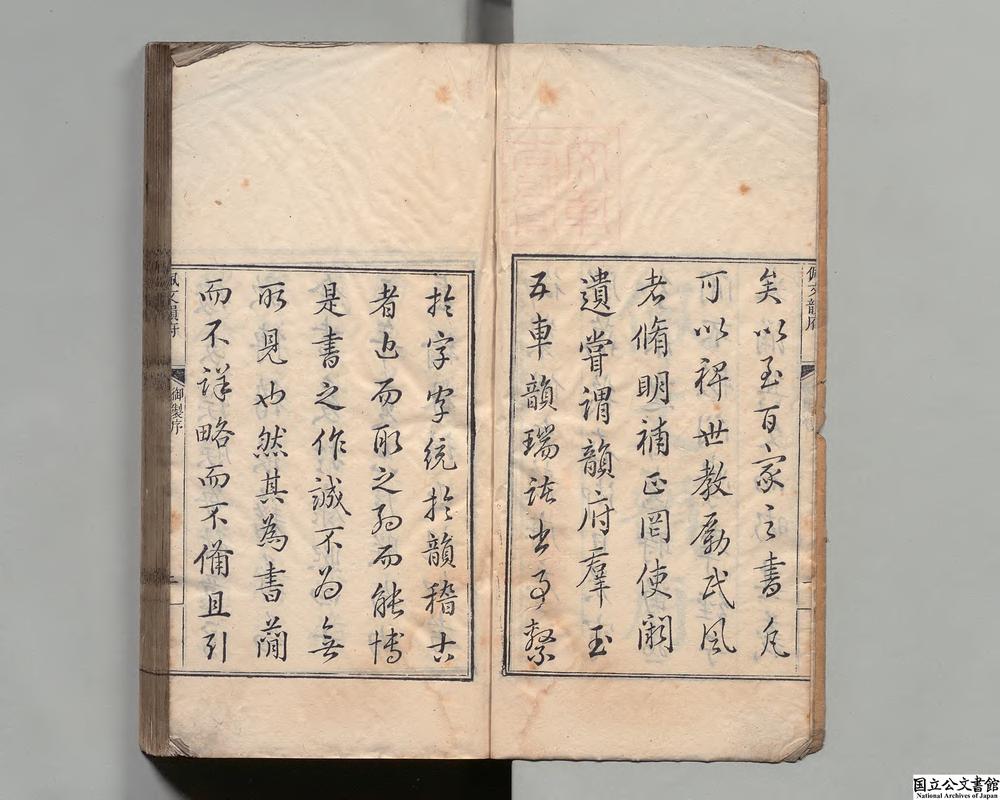 佩文韻府
矣以至百家之書凡
可以裨世教勵民風
者脩明補正罔使闕
遺嘗謂韻府羣玉
五車韻瑞諸書事繫
於字字統於韻稽古
者近而取之約而能博
是書之作誠不為無
所見也然其為書蕳
而不詳略而不備且引
佩文韻府
御製序
国立公文書館
National Archives of Japan